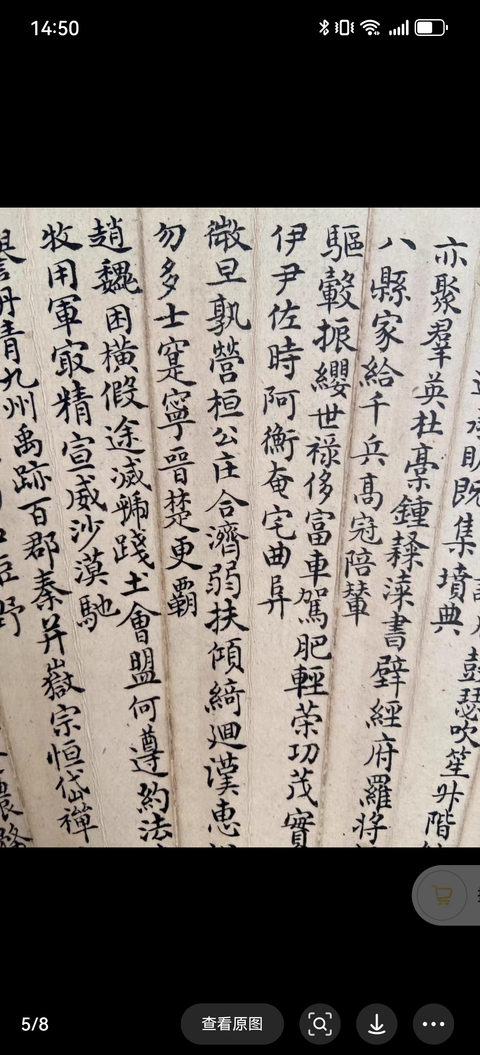 14:50
既集墳典
鼓瑟吹笙升階
亦聚羣英杜稾鍾隸漆書壁經府羅將
八縣家給千兵高冠陪輦
驅轂振纓世祿侈富車駕肥輕策功茂實
伊尹佐時阿衡奄宅曲阜
微旦孰營桓公匡合濟弱扶傾綺迴漢惠
勿多士寔寧晉楚更霸
趙魏困橫假途滅虢踐土會盟何遵約法
牧用軍最精宣威沙漠馳
丹青九州禹跡百郡秦并嶽宗恒岱禪
5/8
查看原图